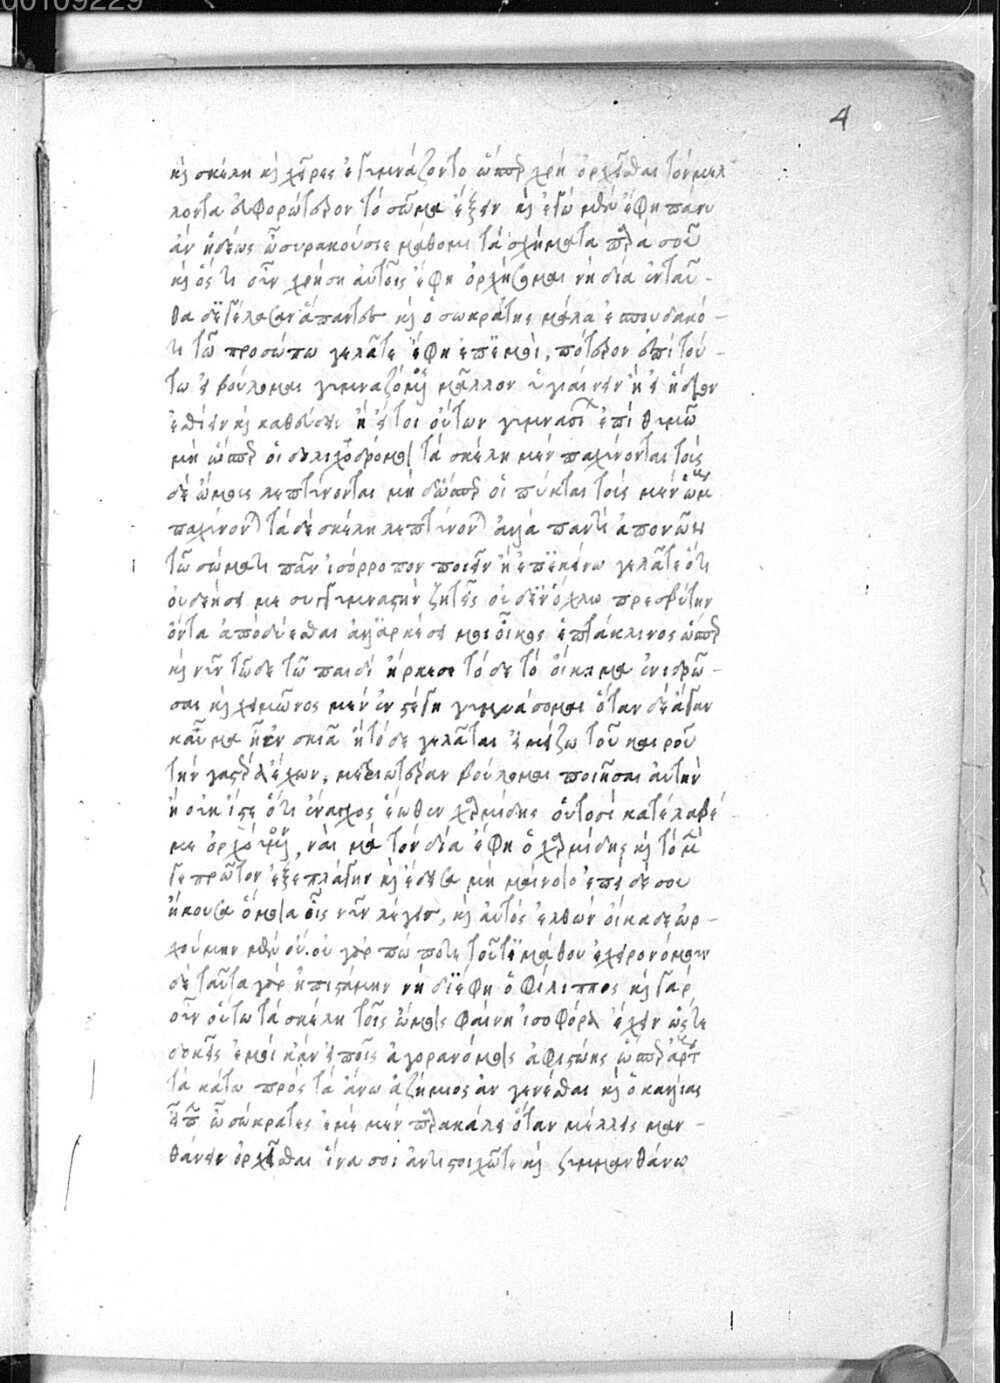 00109229
4
καὶ σκέλη καὶ χεῖρες ἐγυμνάζοντο ὥσπερ χρὴ ὀρχεῖσθαι τὸν μέλ
λοντα εὐφορώτερον τὸ σῶμα ἕξειν καὶ ἐγὼ μὲν ἔφη πάνυ
ἂν ἡδέως ὦ συρακούσιε μάθοιμι τὰ σχήματα παρὰ σοῦ
καὶ ὅς τι οὖν χρήση αὐτοῖς ἔφη ὀρχήσομαι νὴ δία ἐνταῦ-
θα δὴ ἐγέλασαν ἅπαντες καὶ ὁ σωκράτης μάλα ἐσπουδακό-
τι τῶ προσώπω γελᾶτε ἔφη ἐπ' ἐμοὶ, πότερον ἐπὶ τού-
τω εἰ βούλομαι γυμναζόμενος μᾶλλον ὑγιαίνειν ἢ εἰ ἥδιον
ἐσθίειν καὶ καθεύδειν ἢ εἰ τοιούτων γυμνασίων ἐπιθυμῶ
μὴ ὥσπερ οἱ δολιχοδρόμοι τὰ σκέλη μὲν παχύνονται τοὺς
δὲ ὤμους λεπτύνονται μὴ δ' ὥσπερ οἱ πύκται τοὺς μὲν ὤμους
παχύνονται τὰ δὲ σκέλη λεπτύνονται ἀλλὰ παντὶ διαπονῶν
τῶ σώματι πᾶν ἰσόρροπον ποιεῖν ἢ ἐπ' ἐκείνω γελᾶτε ὅτι
οὐ δεήσει με συγγυμναστὴν ζητεῖν οὐδ' ἐν ὄχλω πρεσβύτην
ὄντα ἀποδύεσθαι ἀλλ' ἀρκέσει μοι οἶκος ἑπτάκλινος ὥσπερ
καὶ νῦν τῶδε τῶ παιδὶ ἤρκεσε τόδε τὸ οἴκημα ἐνιδρῶ-
σαι καὶ χειμῶνος μὲν ἐν στέγη γυμνάσομαι ὅταν δὲ ἄγαν
καῦμα ἦ ἐν σκιᾶ ἢ τόδε γελᾶται εἰ μείζω τοῦ καιροῦ
τὴν γαστέρα ἔχων, μετριωτέραν βούλομαι ποιῆσαι αὐτὴν
ἢ οὐκ ἴστε ὅτι ἔναγχος ἕωθεν χαρμίδης οὑτοσὶ κατέλαβέ
με ὀρχούμενον, ναὶ μὰ τὸν δία ἔφη ὁ χαρμίδης καὶ τὸ μέν
γε πρῶτον ἐξεπλάγην καὶ ἔδεισα μὴ μαίνοιο ἐπεὶ δέ σου
ἤκουσα ὅμοια οἷς νῦν λέγεις, καὶ αὐτὸς ἐλθὼν οἴκαδε ὠρ-
χούμην μὲν οὔ. οὐ γάρ πώποτε τοῦτ' ἔμαθον ἐχειρονόμουν
δὲ ταῦτα γὰρ ἠπιστάμην νὴ δί' ἔφη ὁ φίλιππος καὶ γὰρ
οὖν οὕτω τὰ σκέλη τοῖς ὤμοις φαίνη ἰσοφόρα ἔχειν ὥστε
δοκεῖς ἐμοὶ κἂν εἰ τοῖς ἀγορανόμοις ἀφισταίης ὥσπερ ἄρτους
τὰ κάτω πρὸς τὰ ἄνω ἀζήμιος ἂν γενέσθαι καὶ ὁ καλλίας
εἶπεν ὦ σώκρατες ἐμὲ μὲν παρακάλει ὅταν μέλλεις μαν-
θάνειν ὀρχεῖσθαι ἵνα σοι ἀντιστοιχῶ τε καὶ συμμανθάνω